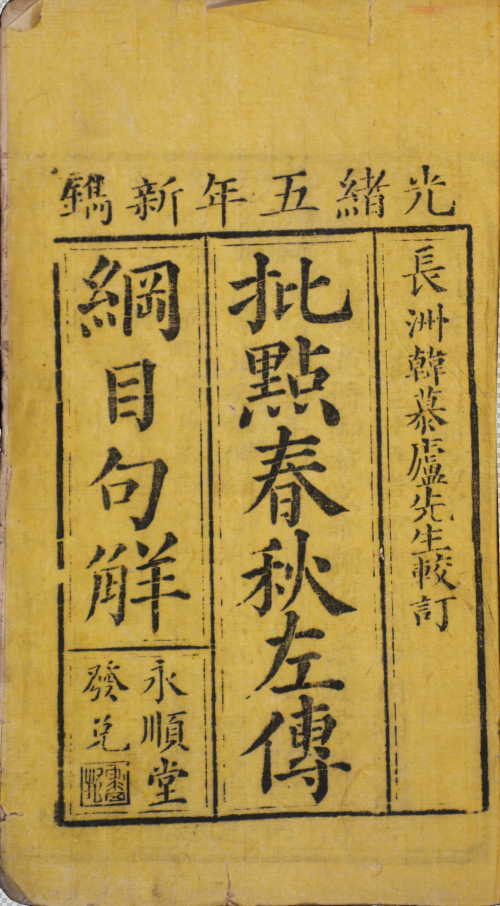 光緒五年新鐫
長洲韓慕廬先生較訂
批點春秋左傳
綱目句觧
永順堂
發兌